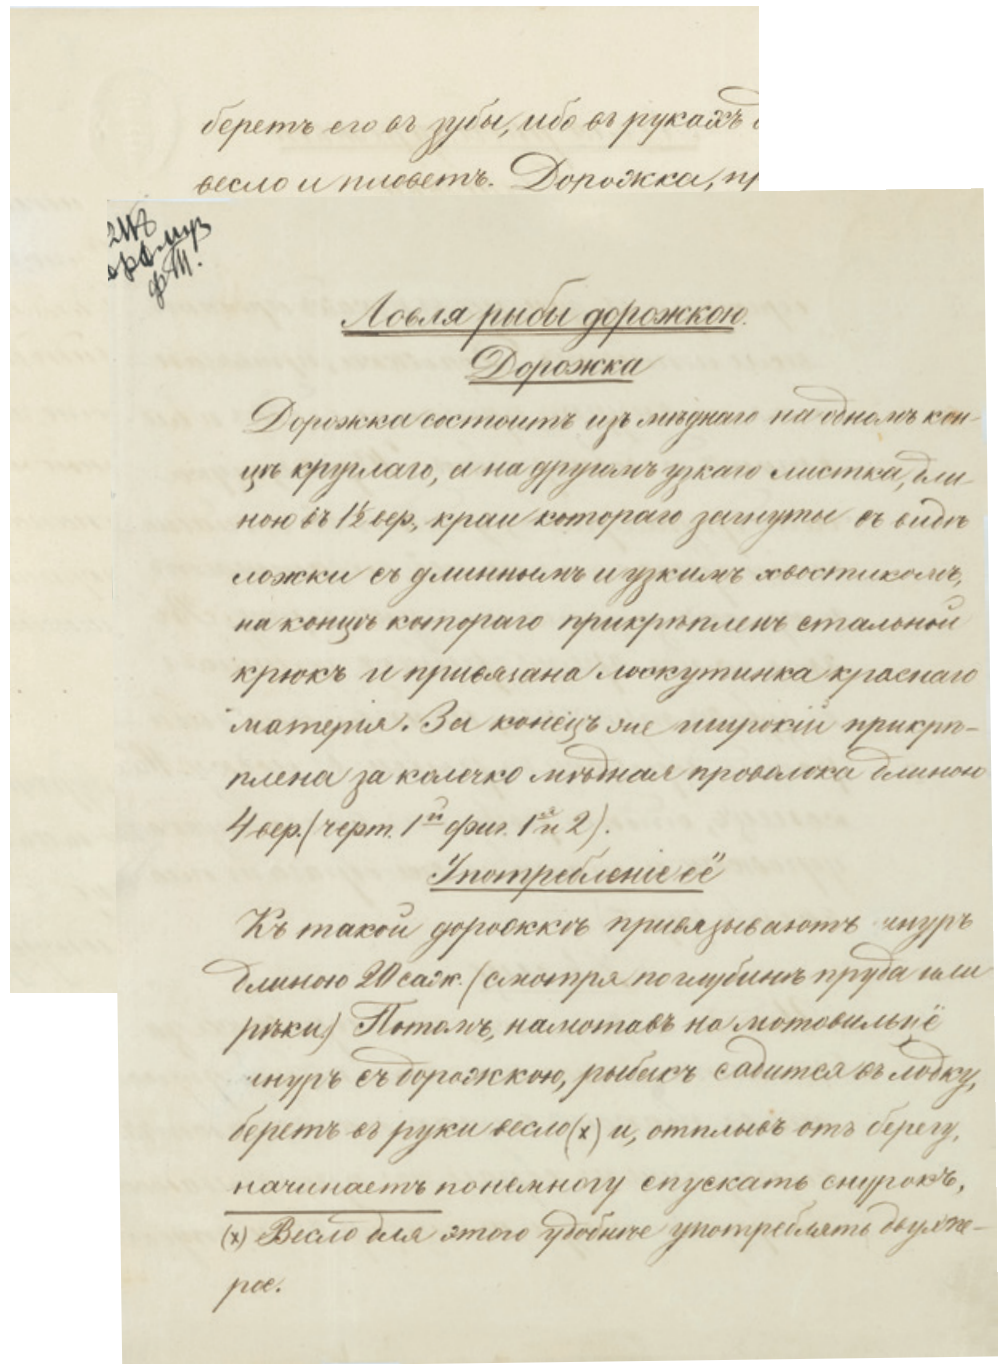 беретъ его въ зубы, ибо въ рукахъ
весло и пловетъ. Дорожка, пр
Ловля рыбы дорожкою.
Дорожка
Дорожка состоитъ изъ мѣднаго на одномъ кон-
цѣ круглаго, а на другомъ узкаго листка, дли-
ною въ 1½ вер., краи котораго загнуты въ видѣ
ложки съ длиннымъ и узкимъ хвостикомъ,
на концѣ котораго прикрѣпленъ стальной
крюкъ и привязана лоскутинка краснаго
матерія. За конецъ же широкій прикрѣ-
плена за колечко мѣдная проволока длиною
4 вер. (черт. 1й фиг. 1я и 2).
Употребленіе её
Къ такой дорожкѣ привязываютъ шнуръ
длиною 20 саж. (смотря по глубинѣ пруда или
рѣки) Потомъ, намотавъ на мотовильцё
шнуръ съ дорожкою, рыбакъ садится въ лодку,
беретъ въ руки весло (х) и, отплывъ отъ берегу,
начинаетъ понемногу спускать снурокъ,
(х) Весло для этого удобнѣе употреблять двухпе-
рое.